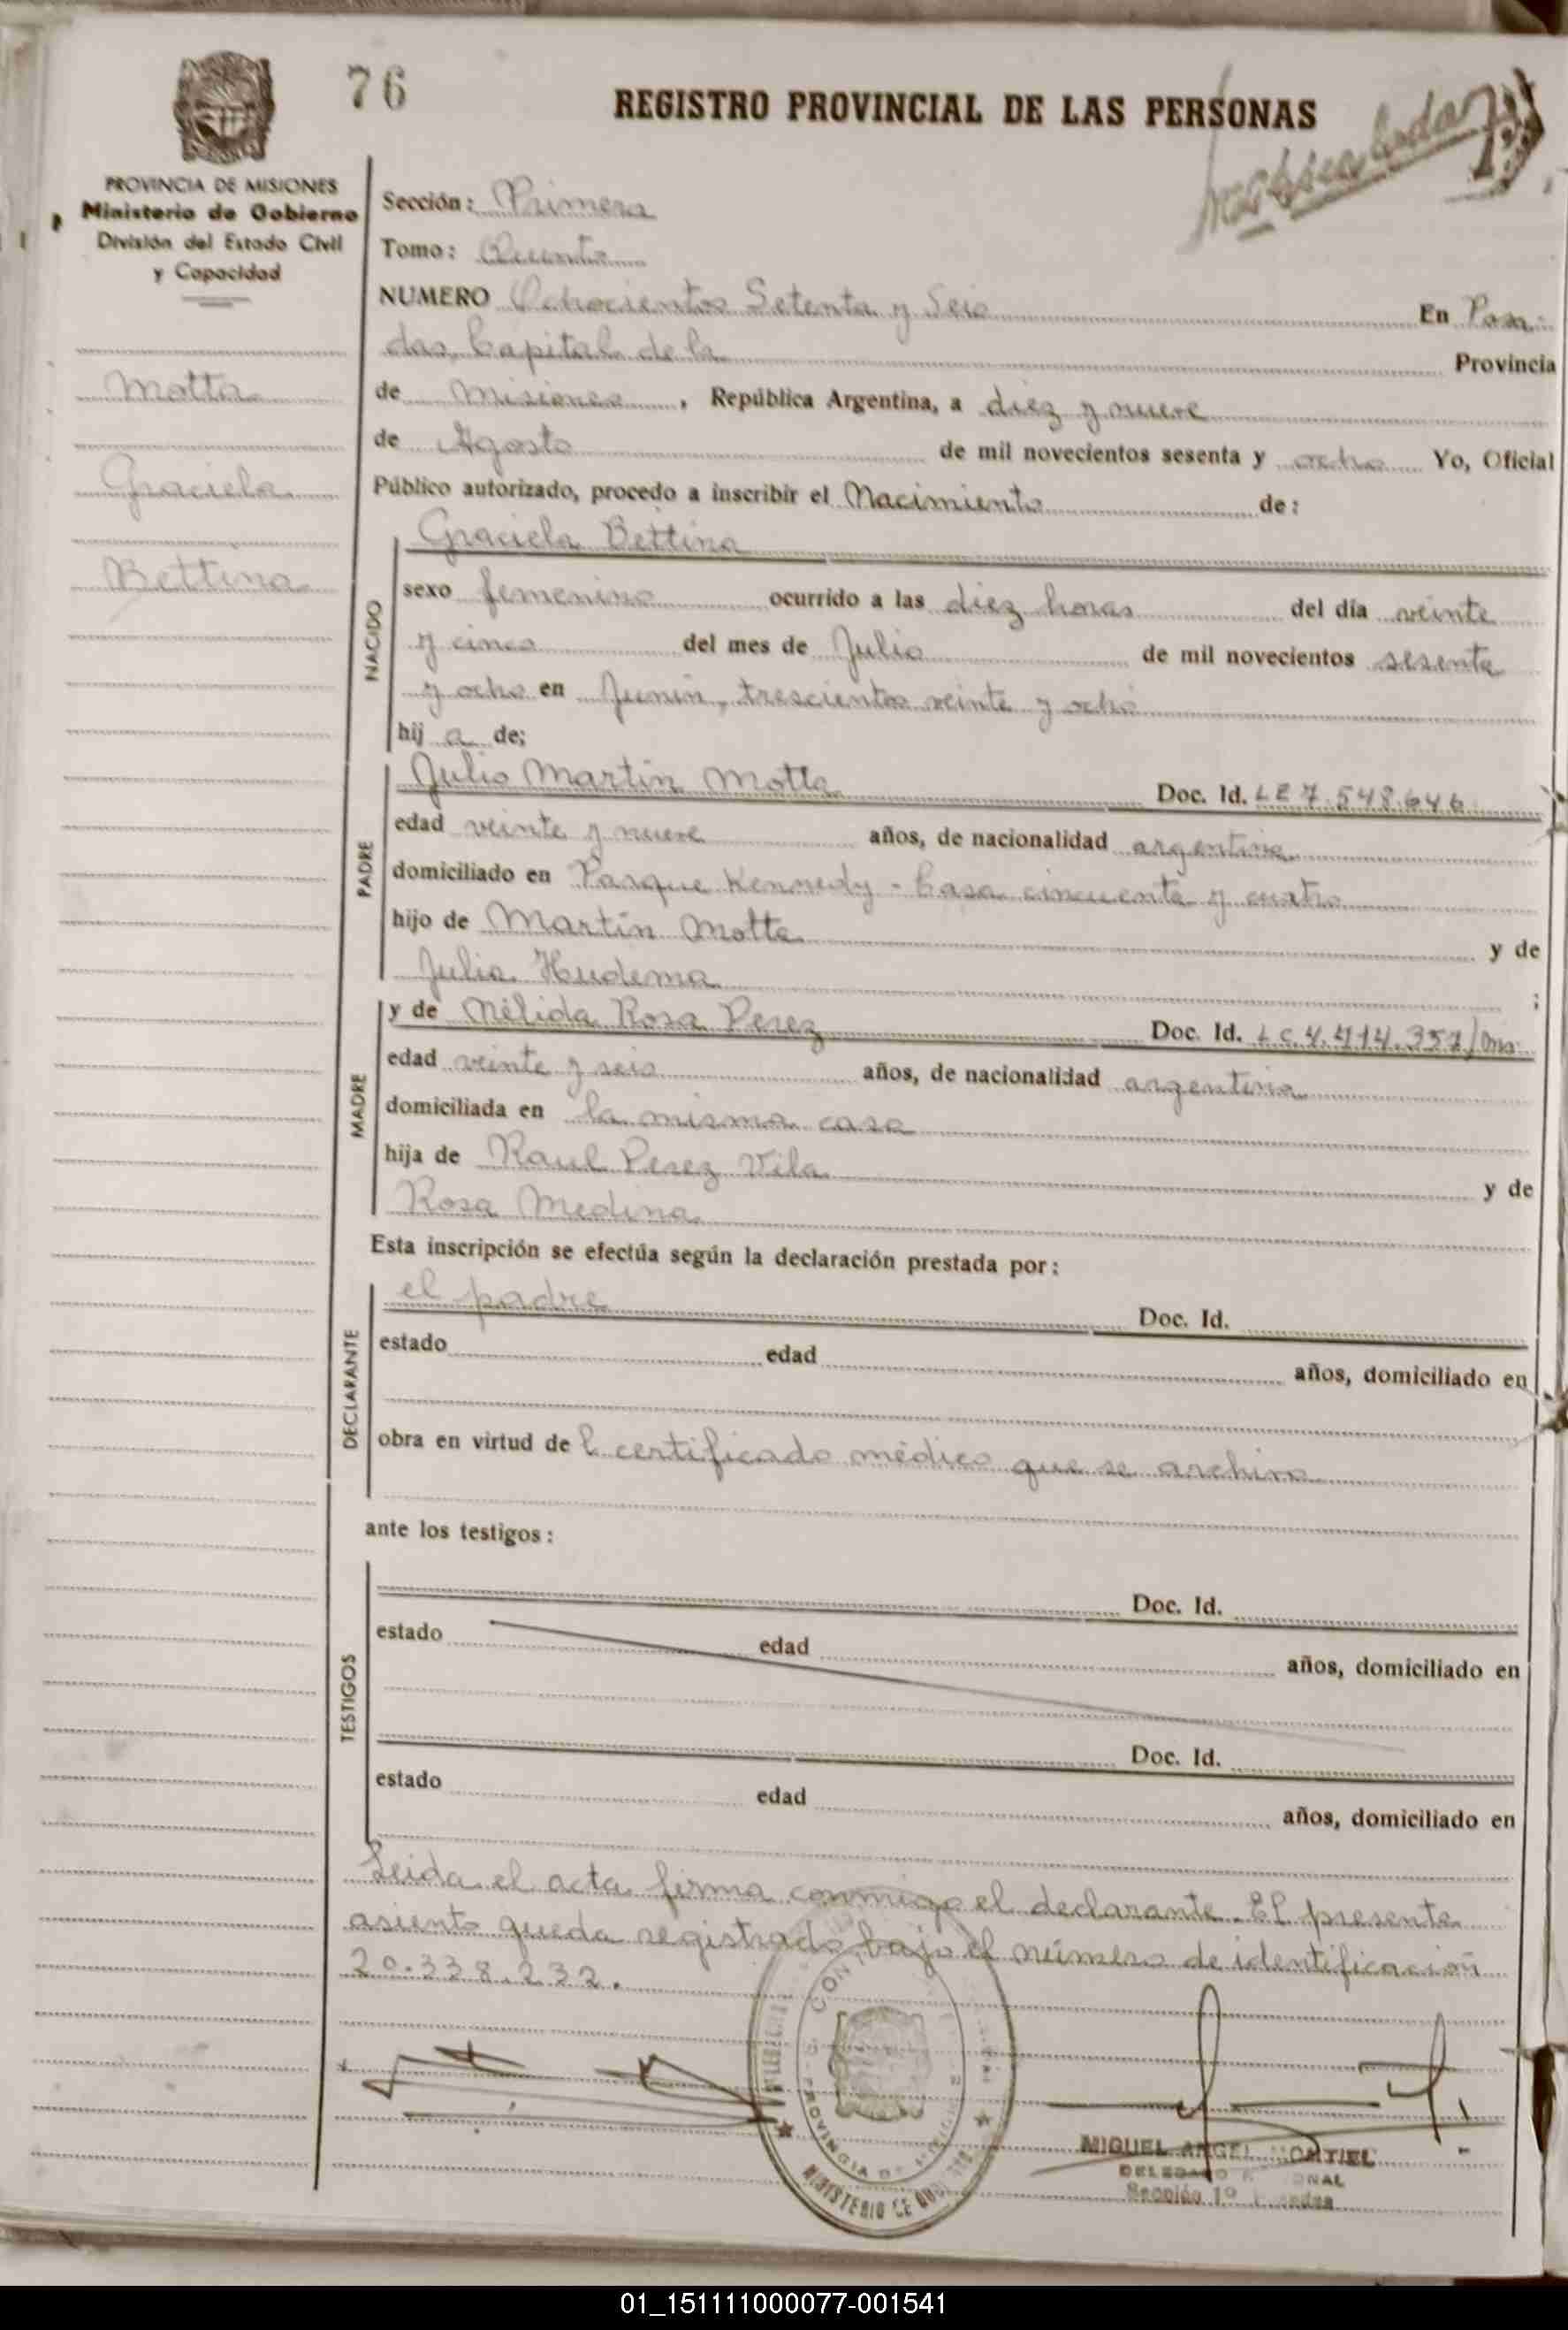 76
REGISTRO PROVINCIAL DE LAS PERSONAS
PROVINCIA DE MISIONES
Ministerio de Gobierno
División del Estado Civil
y Capacidad
Motta
Graciela
Bettina
Sección: Primera
Tomo: Quinto
NUMERO Ochocientos Setenta y Seis En Posa-
das, Capital de la Provincia
de Misiones, República Argentina, a diez y nueve
de Agosto de mil novecientos sesenta y ocho Yo, Oficial
Público autorizado, procedo a inscribir el Nacimiento de:
NACIDO
Graciela Bettina
sexo femenino ocurrido a las diez horas del día veinte
y cinco del mes de Julio de mil novecientos sesenta
y ocho en Junín, trescientos veinte y ocho
hij a de;
PADRE
Julio Martín Motta Doc. Id. LE 7.548.646
edad veinte y nueve años, de nacionalidad argentina
domiciliado en Parque Kennedy - Casa cincuenta y cuatro
hijo de Martín Motta y de
Julia Hudema ;
MADRE
y de Nélida Rosa Perez Doc. Id. LC 4.414.357/Mis.
edad veinte y seis años, de nacionalidad argentina
domiciliada en la misma casa
hija de Raul Perez Vila y de
Rosa Medina
Esta inscripción se efectúa según la declaración prestada por:
DECLARANTE
el padre Doc. Id.
estado edad años, domiciliado en
obra en virtud de l certificado médico que se archiva
ante los testigos:
TESTIGOS
Doc. Id.
estado edad años, domiciliado en
Doc. Id.
estado edad años, domiciliado en
Leida el acta firma conmigo el declarante. El presente
asiento queda registrado bajo el número de identificación
20.338.232.
PROVINCIA DE
MINISTERIO DE
MIGUEL ANGEL MONTIEL
Sección 1º
01_151111000077-001541